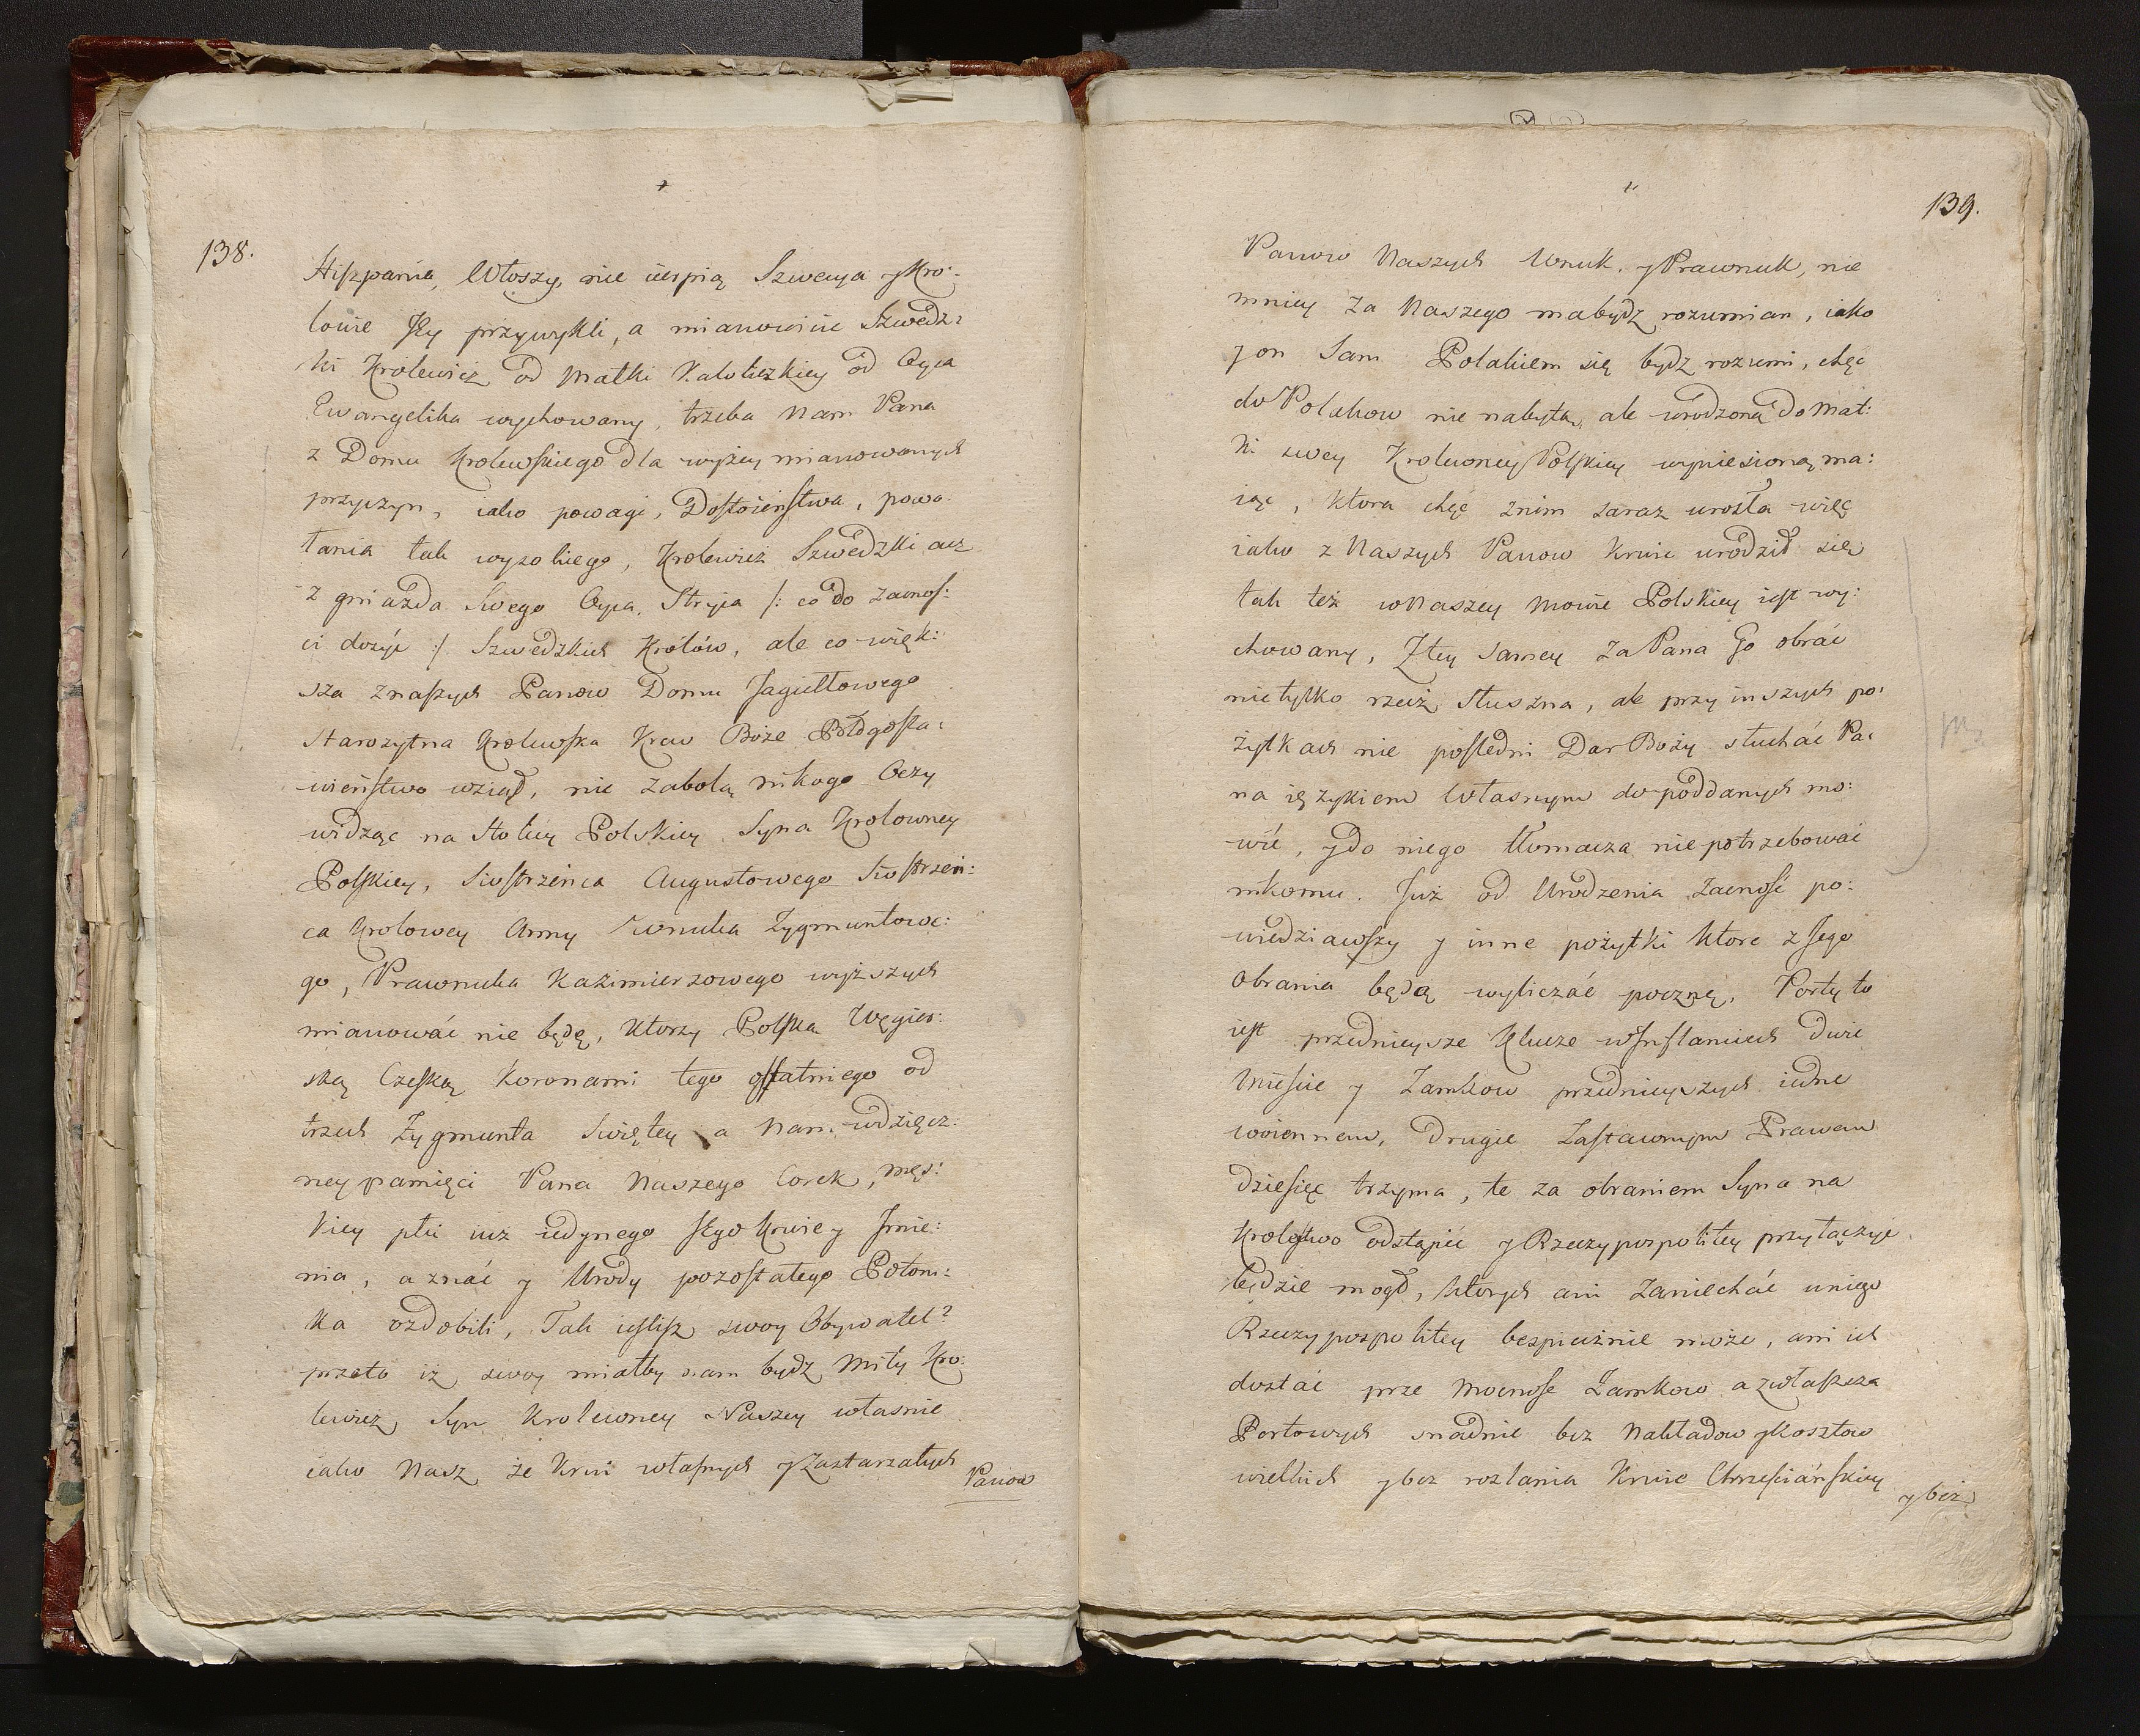 138.
Hiszpania, Włoszy, nie cierpią Szwecya y Kro:
lowie Jey przywykli, a mianowicie Szwedz:
ki Krolewicz od Matki Katoliczkiey od Oyca
Ewangelika wychowany, trzeba Nam Pana
z Domu Krolewskiego dla wyżey mianowanych
przyczyn, iako powagi, Dostoieństwa, powo
łania tak wysokiego, Krolewicz Szwedzki acz
z gniazda Swego Oyca, Stryia /: co do zacnos:
ci dosyć :/ Szwedzkich Królów, ale co więk:
sza z naszych Panow Domu Jagiełłowego
Starożytna Krolewska Krew Boże Błogosła:
wieństwo wziął, nie zabolą nikogo Oczy
widząc na Stolicy Polskiey Syna Krolowney
Polskiey, Siostrzeńca Augustowego Siostrzeń:
ca Krolowey Anny Wnuka Zygmuntowe:
go, Prawnuka Kazimierzowego wyższych
mianować nie będę, ktorzy Polską Węgier:
ską Czeską Koronami tego ostatniego od
trzech Zygmunta Swiętey a Nam wdzięcz:
ney pamięci Pana Naszego Corek, męs:
kiey płci iuż iedynego Jego Krwie y Jmie:
nia, a znać y Urody pozostałego Potom:
ka ozdobili, Tak iestisz swoy Obywatel?
przeto iż swoy miałby nam bydz miły Kro:
lewicz, Syn Krolewney Naszey własnie
iako Nasz że Krwi własnych y Zastarzałych
Panow
139.
Panow Naszych Wnuk. y Prawnuk, nie
mniey za Naszego ma bydz rozumian, iako
y on Sam Polakiem się bydz rozumi, chęć
do Polakow nie nabytą, ale wrodzoną do Mat:
ki swey Krolewney Polskiey wyniesioną ma:
iąc, ktora chęć z nim zaraz urosła więc
iako z Naszych Panow krwie urodził się
tak też w Naszey Mowie Polskiey iest wy:
chowany, Z tey samey za Pana Go obrać
nie tylko rzecz słuszna, ale przy inszych po:
żytkach nie posledni Dar Boży słuchać Pa:
na ięzykiem własnym do poddanych mo:
wić, y do niego tłomacza nie potrzebować
nikomu. Już od Urodzenia zacnosć po:
wiedziawszy y inne pożytki ktore z Jego
Obrania będą wyliczać pocznę, Porty to
iest przednieysze klucze w Jnflanciech Dwie
Miescie y Zamkow przednieyszych iedne
woiennem, drugie Zastawnym Prawem
dziesięć trzyma, te za obraniem Syna na
Krolestwo odstąpić y Rzeczypospolitey przyłączyć
będzie mogł, ktorych ani zaniechać u niego
Rzeczypospolitey bespiecznie może, ani ich
dostać prze mocnosć Zamkow a zwłaszcza
Portowych snadnie bez Nakładow y kosztow
wielkich y bez rozlania Krwie Chrzesciańskiey
y bez